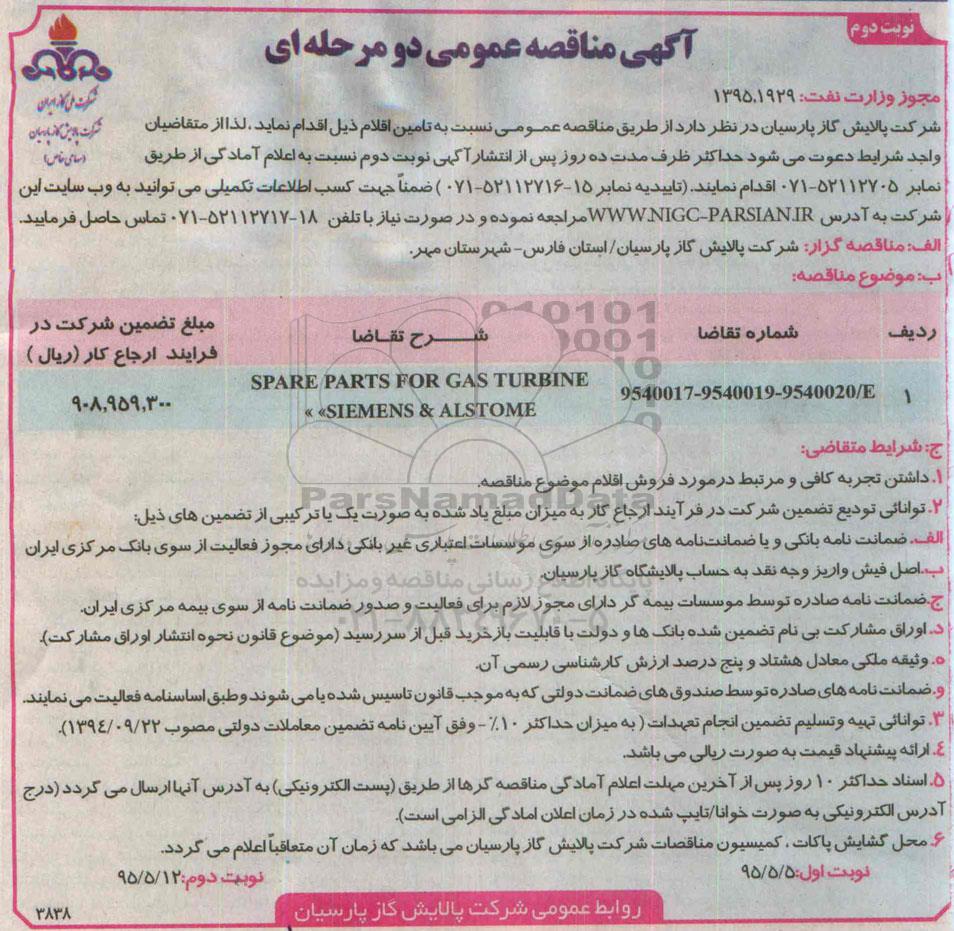 نوبت دوم
آگهی مناقصه عمومی دو مرحله ای
شرکت ملی گاز ایران
شرکت پالایش گاز پارسیان
(سهامی خاص)
مجوز وزارت نفت: ۱۳۹۵.۱۹۲۹
شرکت پالایش گاز پارسیان در نظر دارد از طریق مناقصه عمومی نسبت به تامین اقلام ذیل اقدام نماید ، لذا از متقاضیان
واجد شرایط دعوت می شود حداکثر ظرف مدت ده روز پس از انتشار آگهی نوبت دوم نسبت به اعلام آمادگی از طریق
نمابر ۵۲۱۱۲۷۰۵-۰۷۱ اقدام نمایند. (تاییدیه نمابر ۱۵-۵۲۱۱۲۷۱۶-۰۷۱ ) ضمناً جهت کسب اطلاعات تکمیلی می توانید به وب سایت این
شرکت به آدرس WWW.NIGC-PARSIAN.IR مراجعه نموده و در صورت نیاز با تلفن ۱۸-۵۲۱۱۲۷۱۷-۰۷۱ تماس حاصل فرمایید.
الف: مناقصه گزار: شرکت پالایش گاز پارسیان/ استان فارس- شهرستان مهر.
ب: موضوع مناقصه:
ردیف شماره تقاضا شــــرح تقــاضا مبلغ تضمین شرکت در
فرایند ارجاع کار (ریال )
۱ 9540017-9540019-9540020/E SPARE PARTS FOR GAS TURBINE ۹۰۸,۹۵۹,۳۰۰
« «SIEMENS & ALSTOME
ج: شرایط متقاضی:
۱. داشتن تجربه کافی و مرتبط در مورد فروش اقلام موضوع مناقصه.
ParsNamadData
۲. توانائی تودیع تضمین شرکت در فرآیند ارجاع کار به میزان مبلغ یاد شده به صورت یک یا ترکیبی از تضمین های ذیل:
الف. ضمانت نامه بانکی و یا ضمانت‌نامه های صادره از سوی موسسات اعتباری غیر بانکی دارای مجوز فعالیت از سوی بانک مرکزی ایران
ب. اصل فیش واریز وجه نقد به حساب پالایشگاه گاز پارسیان.
پایگاه اطلاع رسانی مناقصه و مزایده
ج. ضمانت نامه صادره توسط موسسات بیمه گر دارای مجوز لازم برای فعالیت و صدور ضمانت نامه از سوی بیمه مرکزی ایران.
۰۲۱-۸۸۳۴۹۶۷۰-۵
د. اوراق مشارکت بی نام تضمین شده بانک ها و دولت با قابلیت بازخرید قبل از سررسید (موضوع قانون نحوه انتشار اوراق مشارکت).
ه. وثیقه ملکی معادل هشتاد و پنج درصد ارزش کارشناسی رسمی آن.
و. ضمانت نامه های صادره توسط صندوق های ضمانت دولتی که به موجب قانون تاسیس شده یا می شوند و طبق اساسنامه فعالیت می نمایند.
۳. توانائی تهیه و تسلیم تضمین انجام تعهدات ( به میزان حداکثر ۱۰٪ - وفق آیین نامه تضمین معاملات دولتی مصوب ۱۳۹٤/۰۹/۲۲).
٤. ارائه پیشنهاد قیمت به صورت ریالی می باشد.
۵. اسناد حداکثر ۱۰ روز پس از آخرین مهلت اعلام آمادگی مناقصه گرها از طریق (پست الکترونیکی) به آدرس آنها ارسال می گردد (درج
آدرس الکترونیکی به صورت خوانا/تایپ شده در زمان اعلان امادگی الزامی است).
۶. محل گشایش پاکات ، کمیسیون مناقصات شرکت پالایش گاز پارسیان می باشد که زمان آن متعاقباً اعلام می گردد.
نوبت اول: ۹۵/۵/۵ نوبت دوم: ۹۵/۵/۱۲
روابط عمومی شرکت پالایش گاز پارسیان
۳۸۳۸